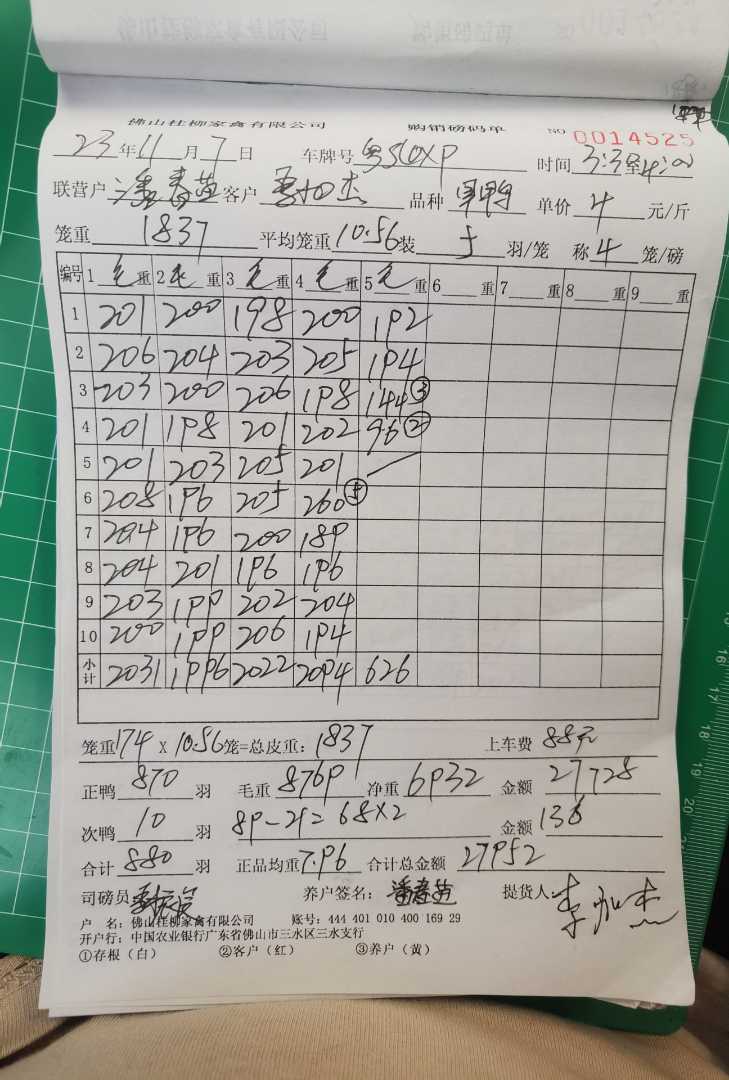 佛山桂柳家禽有限公司 购销磅码单 NO 0014525
23年11月7日 车牌号 时间 3:3 至 4:00
联营户 潘春苗 客户 品种 单价 4 元/斤
笼重 1837 平均笼重 10.56 装 5 羽/笼 称 4 笼/磅
编号 1 毛 重 2 毛 重 3 毛 重 4 毛 重 5 毛 重 6 重 7 重 8 重 9 重
1 201 200 198 200 192
2 206 204 203 205 194
3 203 200 206 198 144 ③
4 201 198 201 202 96 ②
5 201 203 205 201
6 208 196 205 260 ⑤
7 204 196 200 189
8 204 201 196 196
9 203 199 202 204
10 200 199 206 194
小计 2031 1996 2022 2094 626
笼重 174 X 10.56 笼=总皮重: 1837 上车费 88元
正鸭 870 羽 毛重 8769 净重 6932 金额 27728
次鸭 10 羽 89-21=68×2 金额 136
合计 880 羽 正品均重 7.96 合计总金额 27952
司磅员 养户签名: 潘春苗 提货人
户 名: 佛山桂柳家禽有限公司 账号: 444 401 010 400 169 29
开户行: 中国农业银行广东省佛山市三水区三水支行
①存根（白） ②客户（红） ③养户（黄）